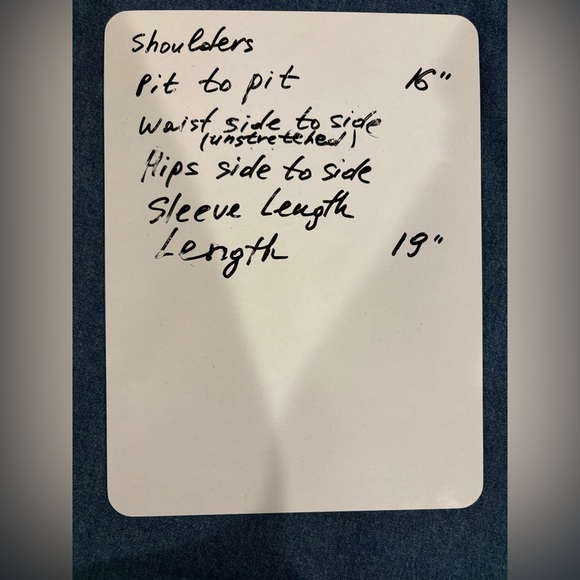 Shoulders
Pit to pit 16"
Waist side to side
(unstretched)
Hips side to side
Sleeve Length
Length 19"